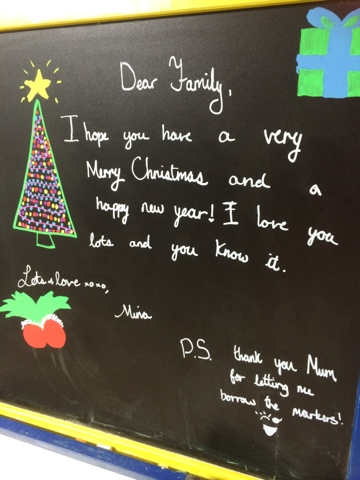 Dear Family,
I hope you have a very
Merry Christmas and a
happy new year! I love you
lots and you know it.
Lots of love xoxo,
Mina
P.S. thank you Mum
for letting me
borrow the markers!